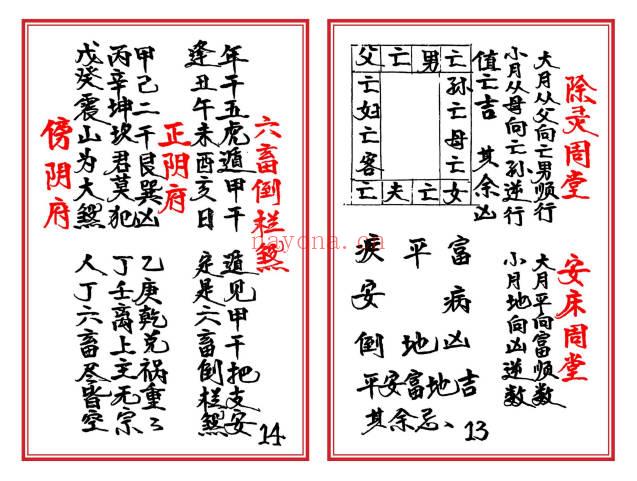 除灵周堂
大月从父向亡男顺行
小月从母向亡孙逆行
值亡吉 其余凶
父 亡 男 亡
亡 孙
妇 亡
亡 母
客 亡
亡 夫 亡 女
安床周堂
大月平向富顺数
小月地向凶逆数
疾 平 富
安 病
倒 地 凶
平安富地吉
其余忌、
13
六畜倒栏煞
年干五虎遁甲干 遁见甲干把支安
逢丑午未酉亥日 定是六畜倒栏煞
正阴府
甲己二干艮巽凶 乙庚乾兑祸重々
丙辛坤坎君莫犯 丁壬离上主无宗
戊癸震山为大煞 人丁六畜尽皆空
傍阴府
14
nayona.cn